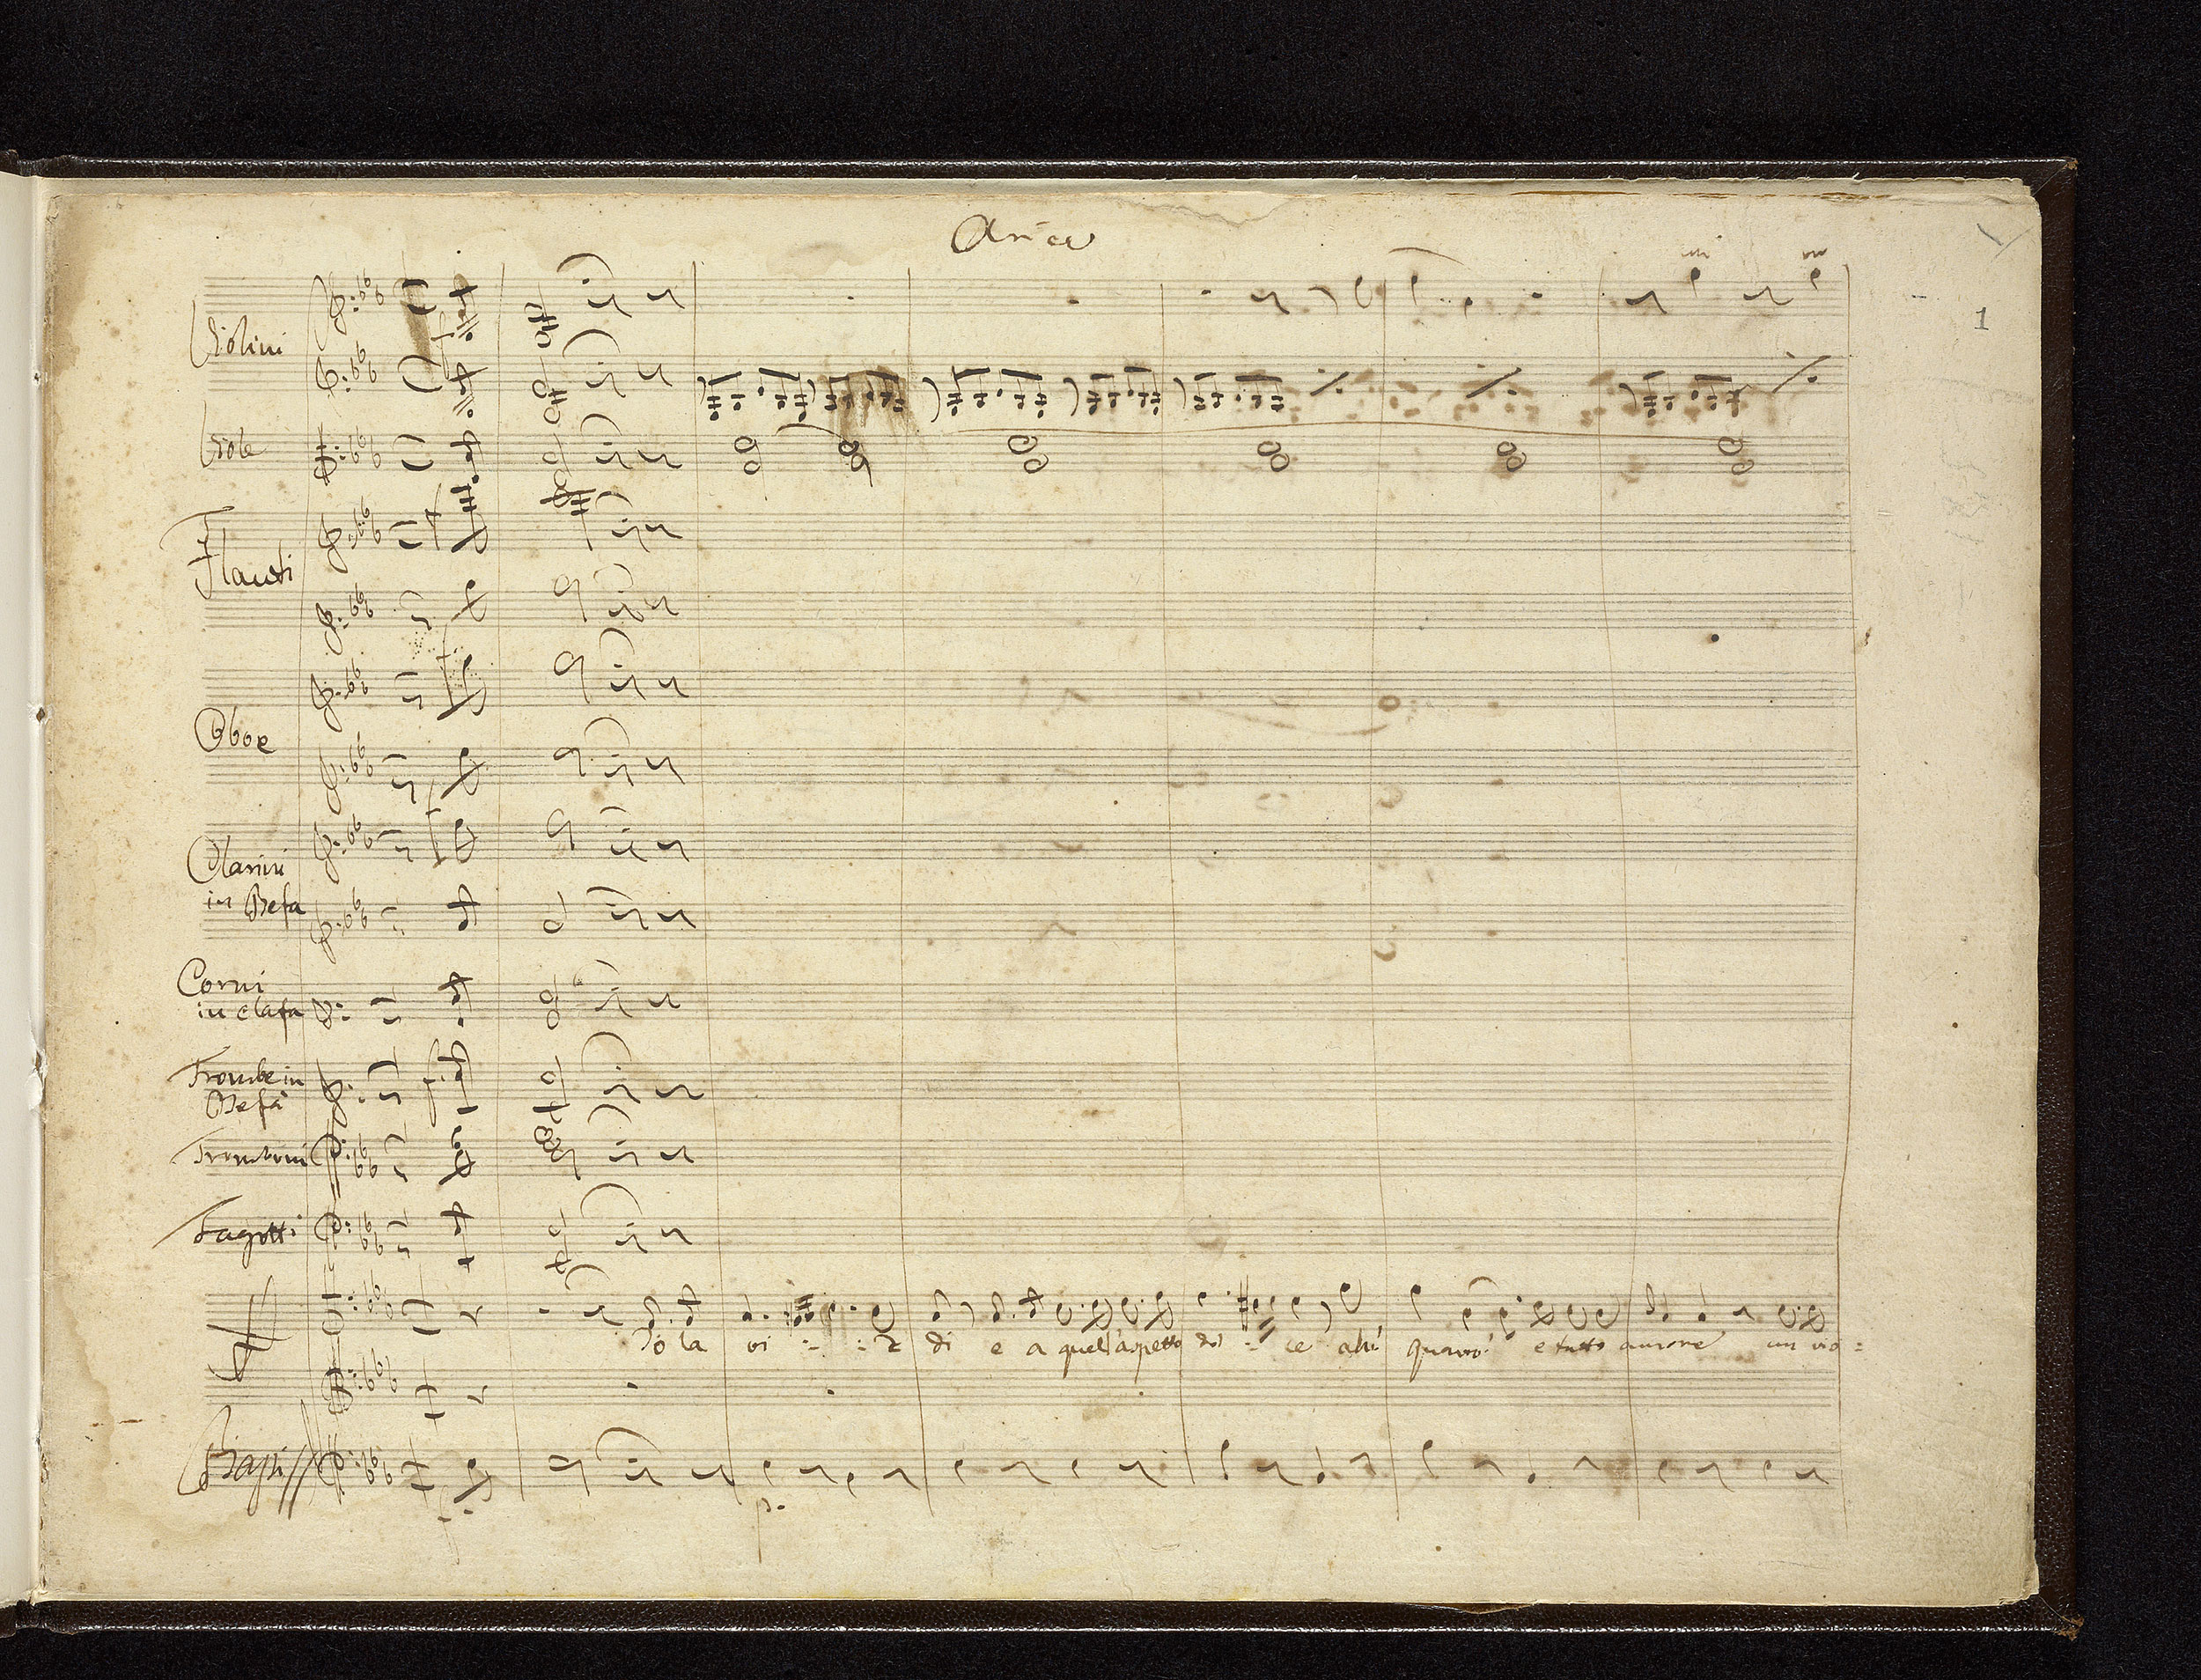 Aria
1
Violini
Viole
Flauti
Oboe
Clarini
in Befa
Corni
in elafa
Trombe in
Befa
Tromboni
Fagotti
Io la vi = : di e a quell'aspetto dol = ce ahi e tutto amore un vio =
Bassi
p.